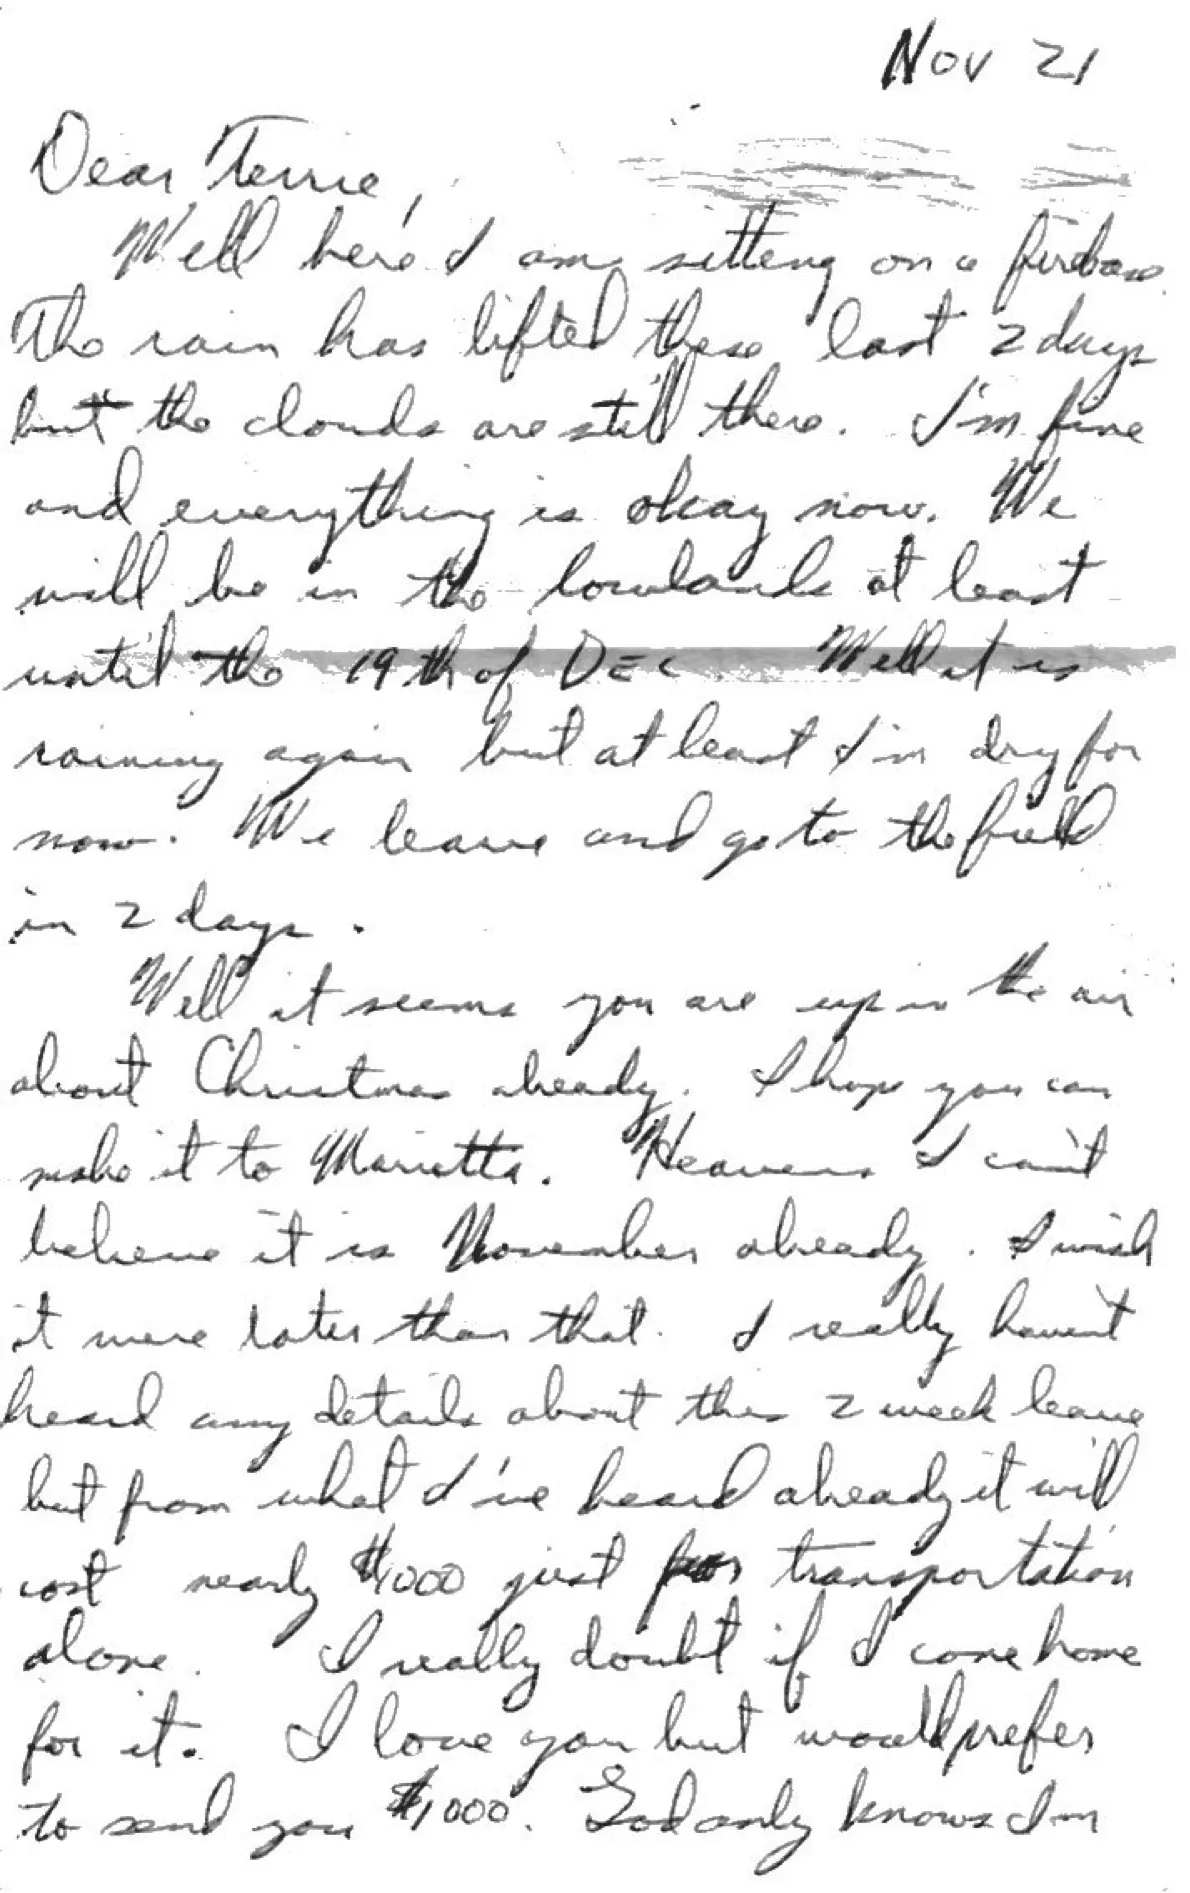 Nov 21
Dear Terrie,
Well here I am sitting on a firebase.
The rain has lifted these last 2 days
but the clouds are still there. I'm fine
and everything is okay now. We
will be in the lowlands at least
until the 19th of DEC. Well it is
raining again but at least I'm dry for
now. We leave and go to the field
in 2 days.
Well it seems you are up in the air
about Christmas already. I hope you can
make it to Marietta. Heavens I can't
believe it is November already. I wish
it were later than that. I really haven't
heard any details about this 2 week leave
but from what I've heard already it will
cost nearly $1000 just for transportation
alone. I really doubt if I come home
for it. I love you but would prefer
to send you $1,000. God only knows I'm